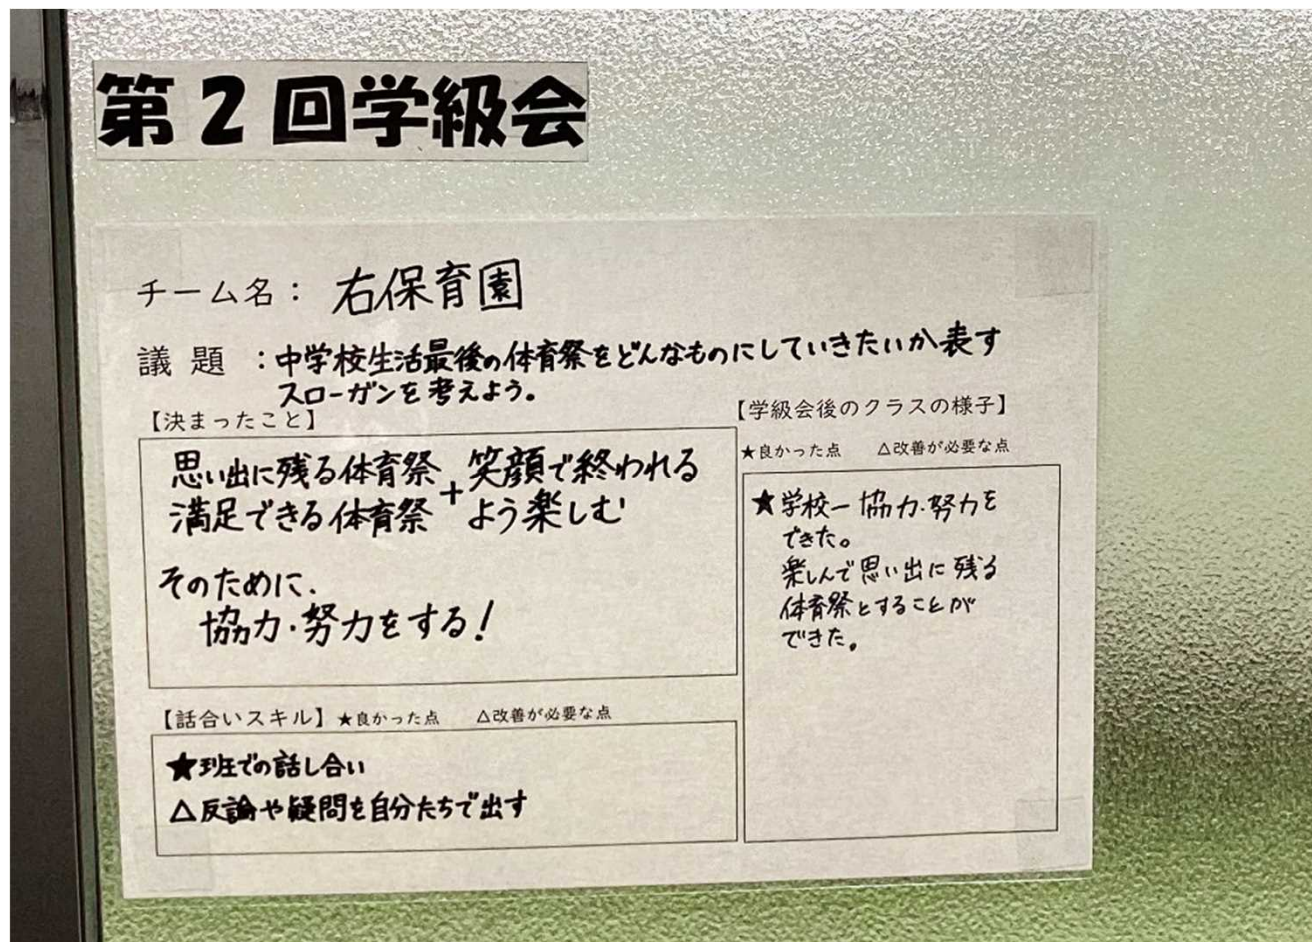 第2回学級会
チーム名： 右保育園
議 題 ：中学校生活最後の体育祭をどんなものにしていきたいか表す
スローガンを考えよう。
【決まったこと】
思い出に残る体育祭 + 笑顔で終われる
満足できる体育祭 よう楽しむ
そのために、
協力・努力をする!
【話合いスキル】★良かった点 △改善が必要な点
★班での話し合い
△反論や疑問を自分たちで出す
【学級会後のクラスの様子】
★良かった点 △改善が必要な点
★学校一協力・努力を
できた。
楽しんで思い出に残る
体育祭とすることが
できた。